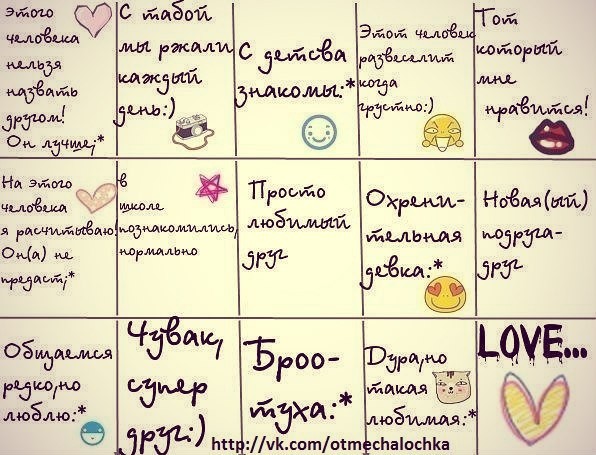 Этого
человека
нельзя
назвать
другом!
Он лучше;*
С табой
мы ржали
каждый
день:)
С детсва
знакомы:*
Этот человек
развеселит
когда
грустно:)
Тот
который
мне
нравится!
На этого
человека
я расчитываю!
Он(а) не
предаст;*
в
школе
познакомились,
нормально
Просто
любимый
друг
Охрени-
тельная
девка:*
Новая(ый)
подруга-
друг
Общаемся
редко,но
люблю:*
Чувак,
супер
друг:)
Броо-
туха:*
Дура,но
такая
любимая:*
LOVE...
http://vk.com/otmechalochka